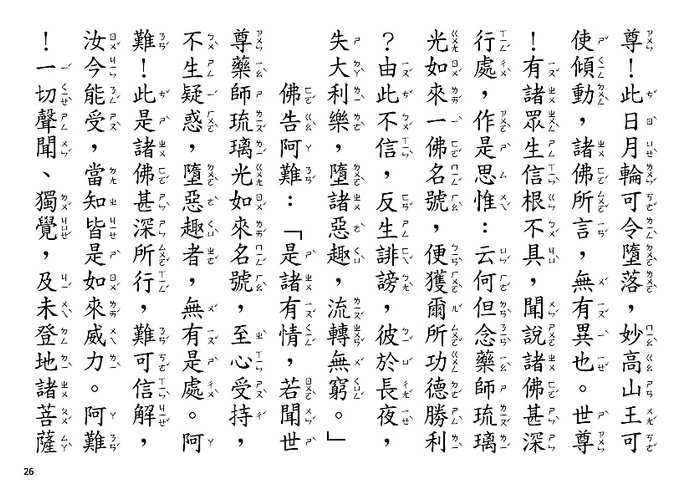 尊！此日月輪可令墮落，妙高山王可
使傾動，諸佛所言，無有異也。世尊
！有諸眾生信根不具，聞說諸佛甚深
行處，作是思惟：云何但念藥師琉璃
光如來一佛名號，便獲爾所功德勝利
？由此不信，反生誹謗，彼於長夜，
失大利樂，墮諸惡趣，流轉無窮。」
佛告阿難：「是諸有情，若聞世
尊藥師琉璃光如來名號，至心受持，
不生疑惑，墮惡趣者，無有是處。阿
難！此是諸佛甚深所行，難可信解，
汝今能受，當知皆是如來威力。阿難
！一切聲聞、獨覺，及未登地諸菩薩
26